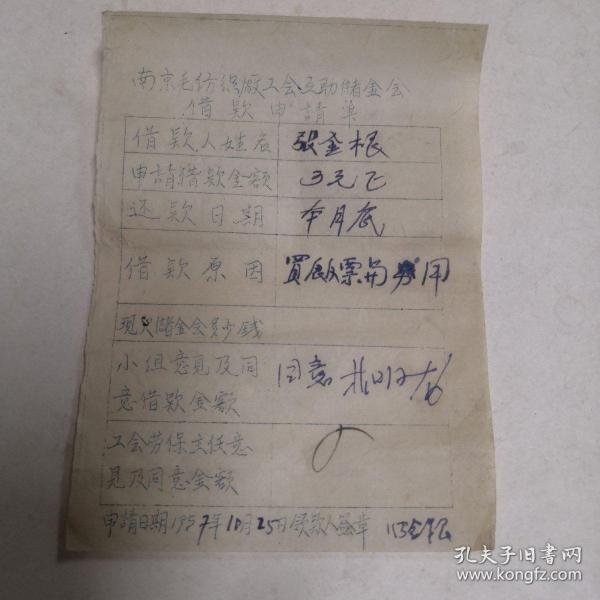 南京毛纺织厰工会互助储金会
借款申請单
借款人姓名 张金根
申請借款金额 3元正
还款日期 本月底
借款原因 買飯票另用
现欠储金会多少钱
小组意見及同 同意
意借款金额
工会劳保主任意
見及同意金额
申請日期1957年10月25日领款人盖章
孔夫子旧书网
www.kongfz.com